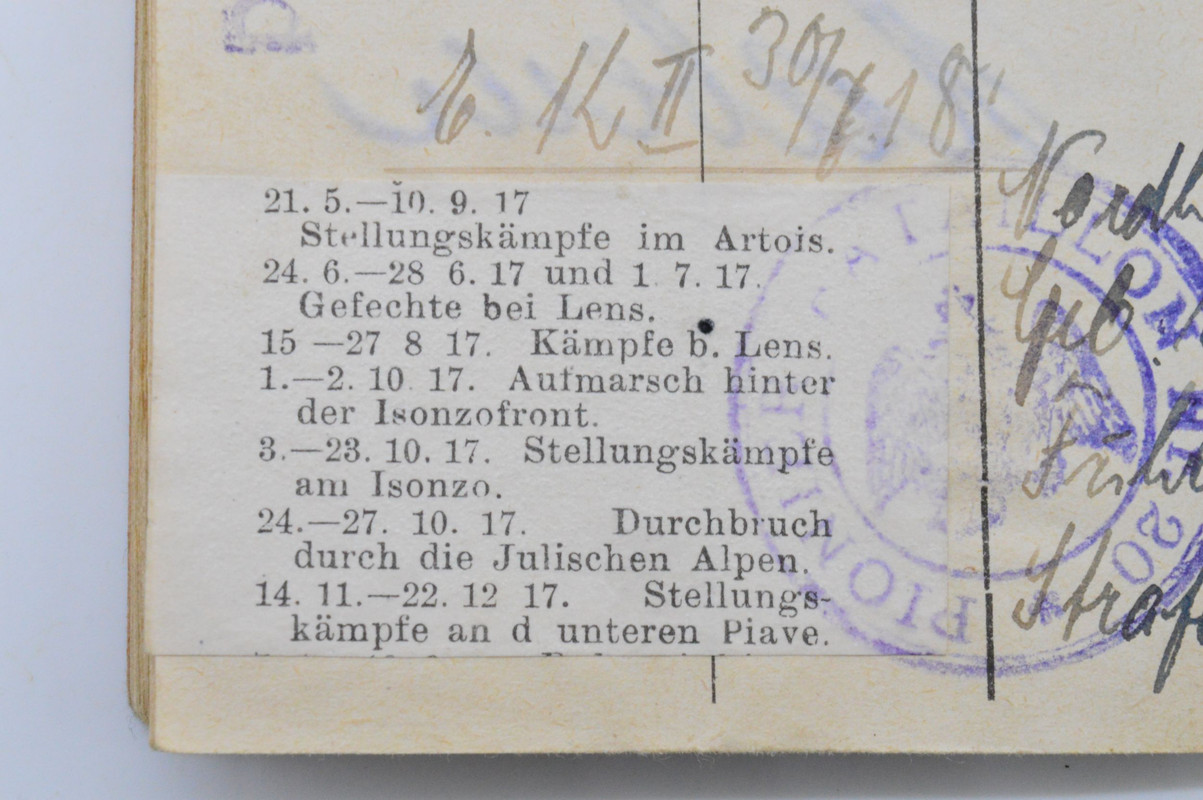 E. K II 30/7.18.
21. 5.—10. 9. 17
Stellungskämpfe im Artois.
24. 6.—28 6. 17 und 1. 7. 17.
Gefechte bei Lens.
15 —27 8 17. Kämpfe b. Lens.
1.—2. 10 17. Aufmarsch hinter
der Isonzofront.
3.—23. 10. 17. Stellungskämpfe
am Isonzo.
24.—27. 10. 17. Durchbruch
durch die Julischen Alpen.
14. 11.—22. 12 17. Stellungs-
kämpfe an d unteren Piave.
Führ
Straf
PIONIER BATAILLON N 20